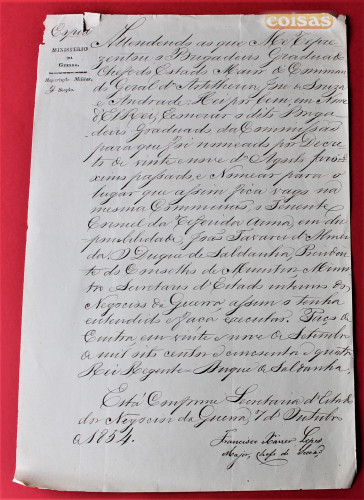 eoisas
Copia
MINISTERIO
DA
GUERRA.
Repartição Militar,
4ª Secção.
Attendendo ao que Me repre
zentou o Brigadeiro Graduado
Chefe do Estado Maior do Comman
do Geral d'Artilheria, José de Souza
e Andrade: Hei por bem, em Nome
d'El Rei, Exonerar o dito Briga
deiro Graduado da Commissão
para que foi nomeado por Decre
to de vinte e nove d'Agosto proxi
ximo passado, e Nomear para o
lugar que assim fica vago na
mesma Commissão, o Tenente
Coronel da referida Arma, em dis
ponibilidade, João Tavares d'Almei
da. O Duque de Saldanha, Presiden
te do Conselho de Ministros, Ministro
e Secretario d'Estado interino dos
Negocios da Guerra assim o tenha
entendido e faça executar. Paço de
Cintra, em vinte e nove de Setembro
de mil oito centos e cincoenta e quatro
Rei Regente = Duque de Saldanha.
Está Conforme. Secretaria d'Estado
dos Negocios da Guerra, 7 d'Outubro
de 1854.
Francisco Xavier Lopes
Major, Chefe de Secção